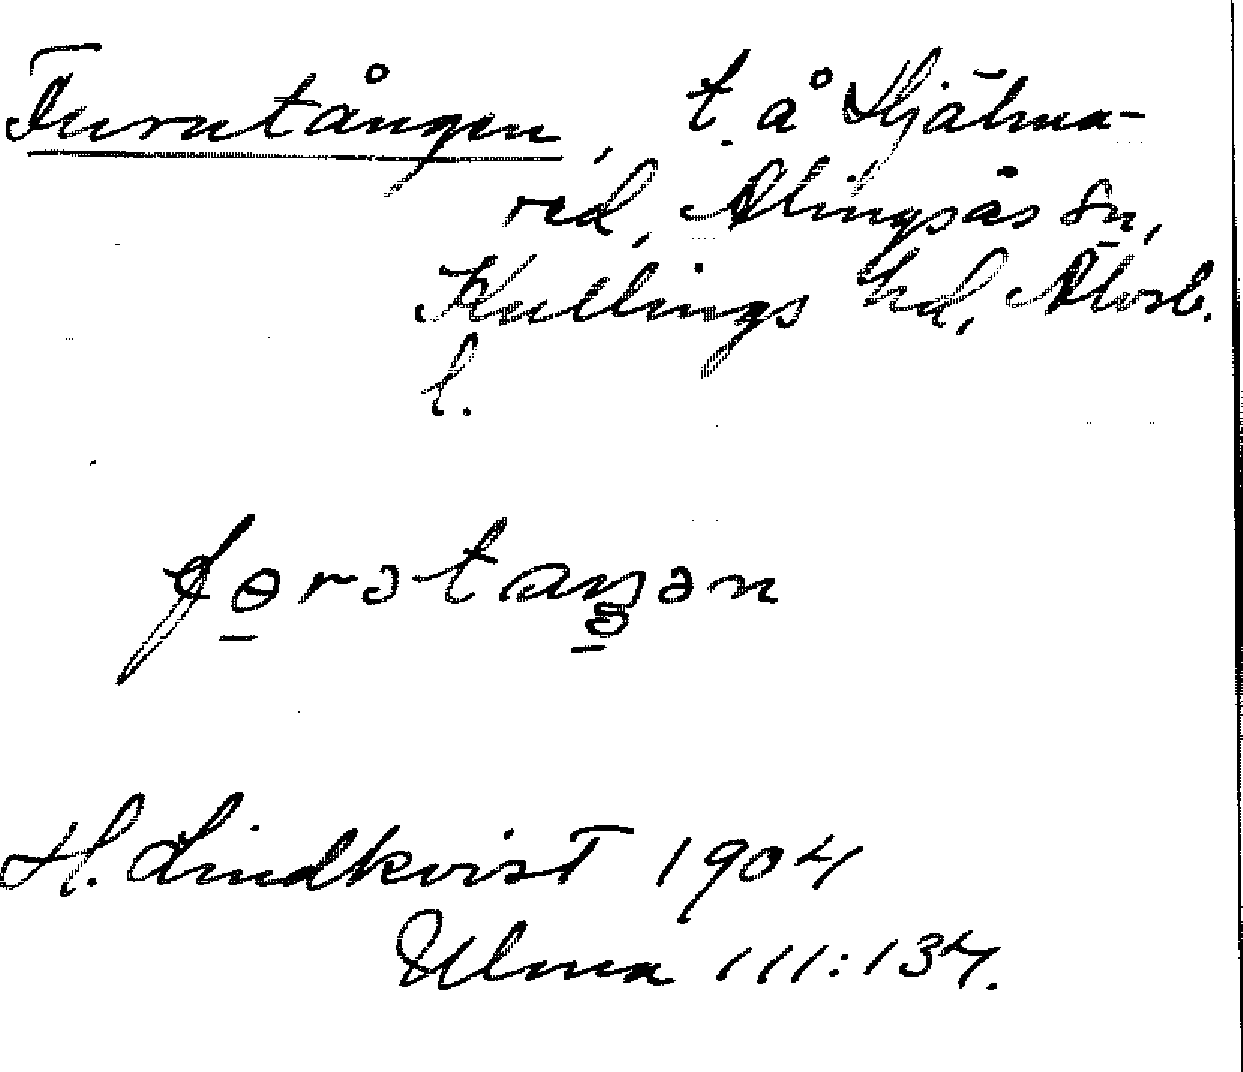 Furutången, t. å Hjälma-
red, Alingsås sn,
Kullings hd, Älvsb.
l.
fɵrətaŋən
H. Lindkvist 1904
Ulma 111:134.